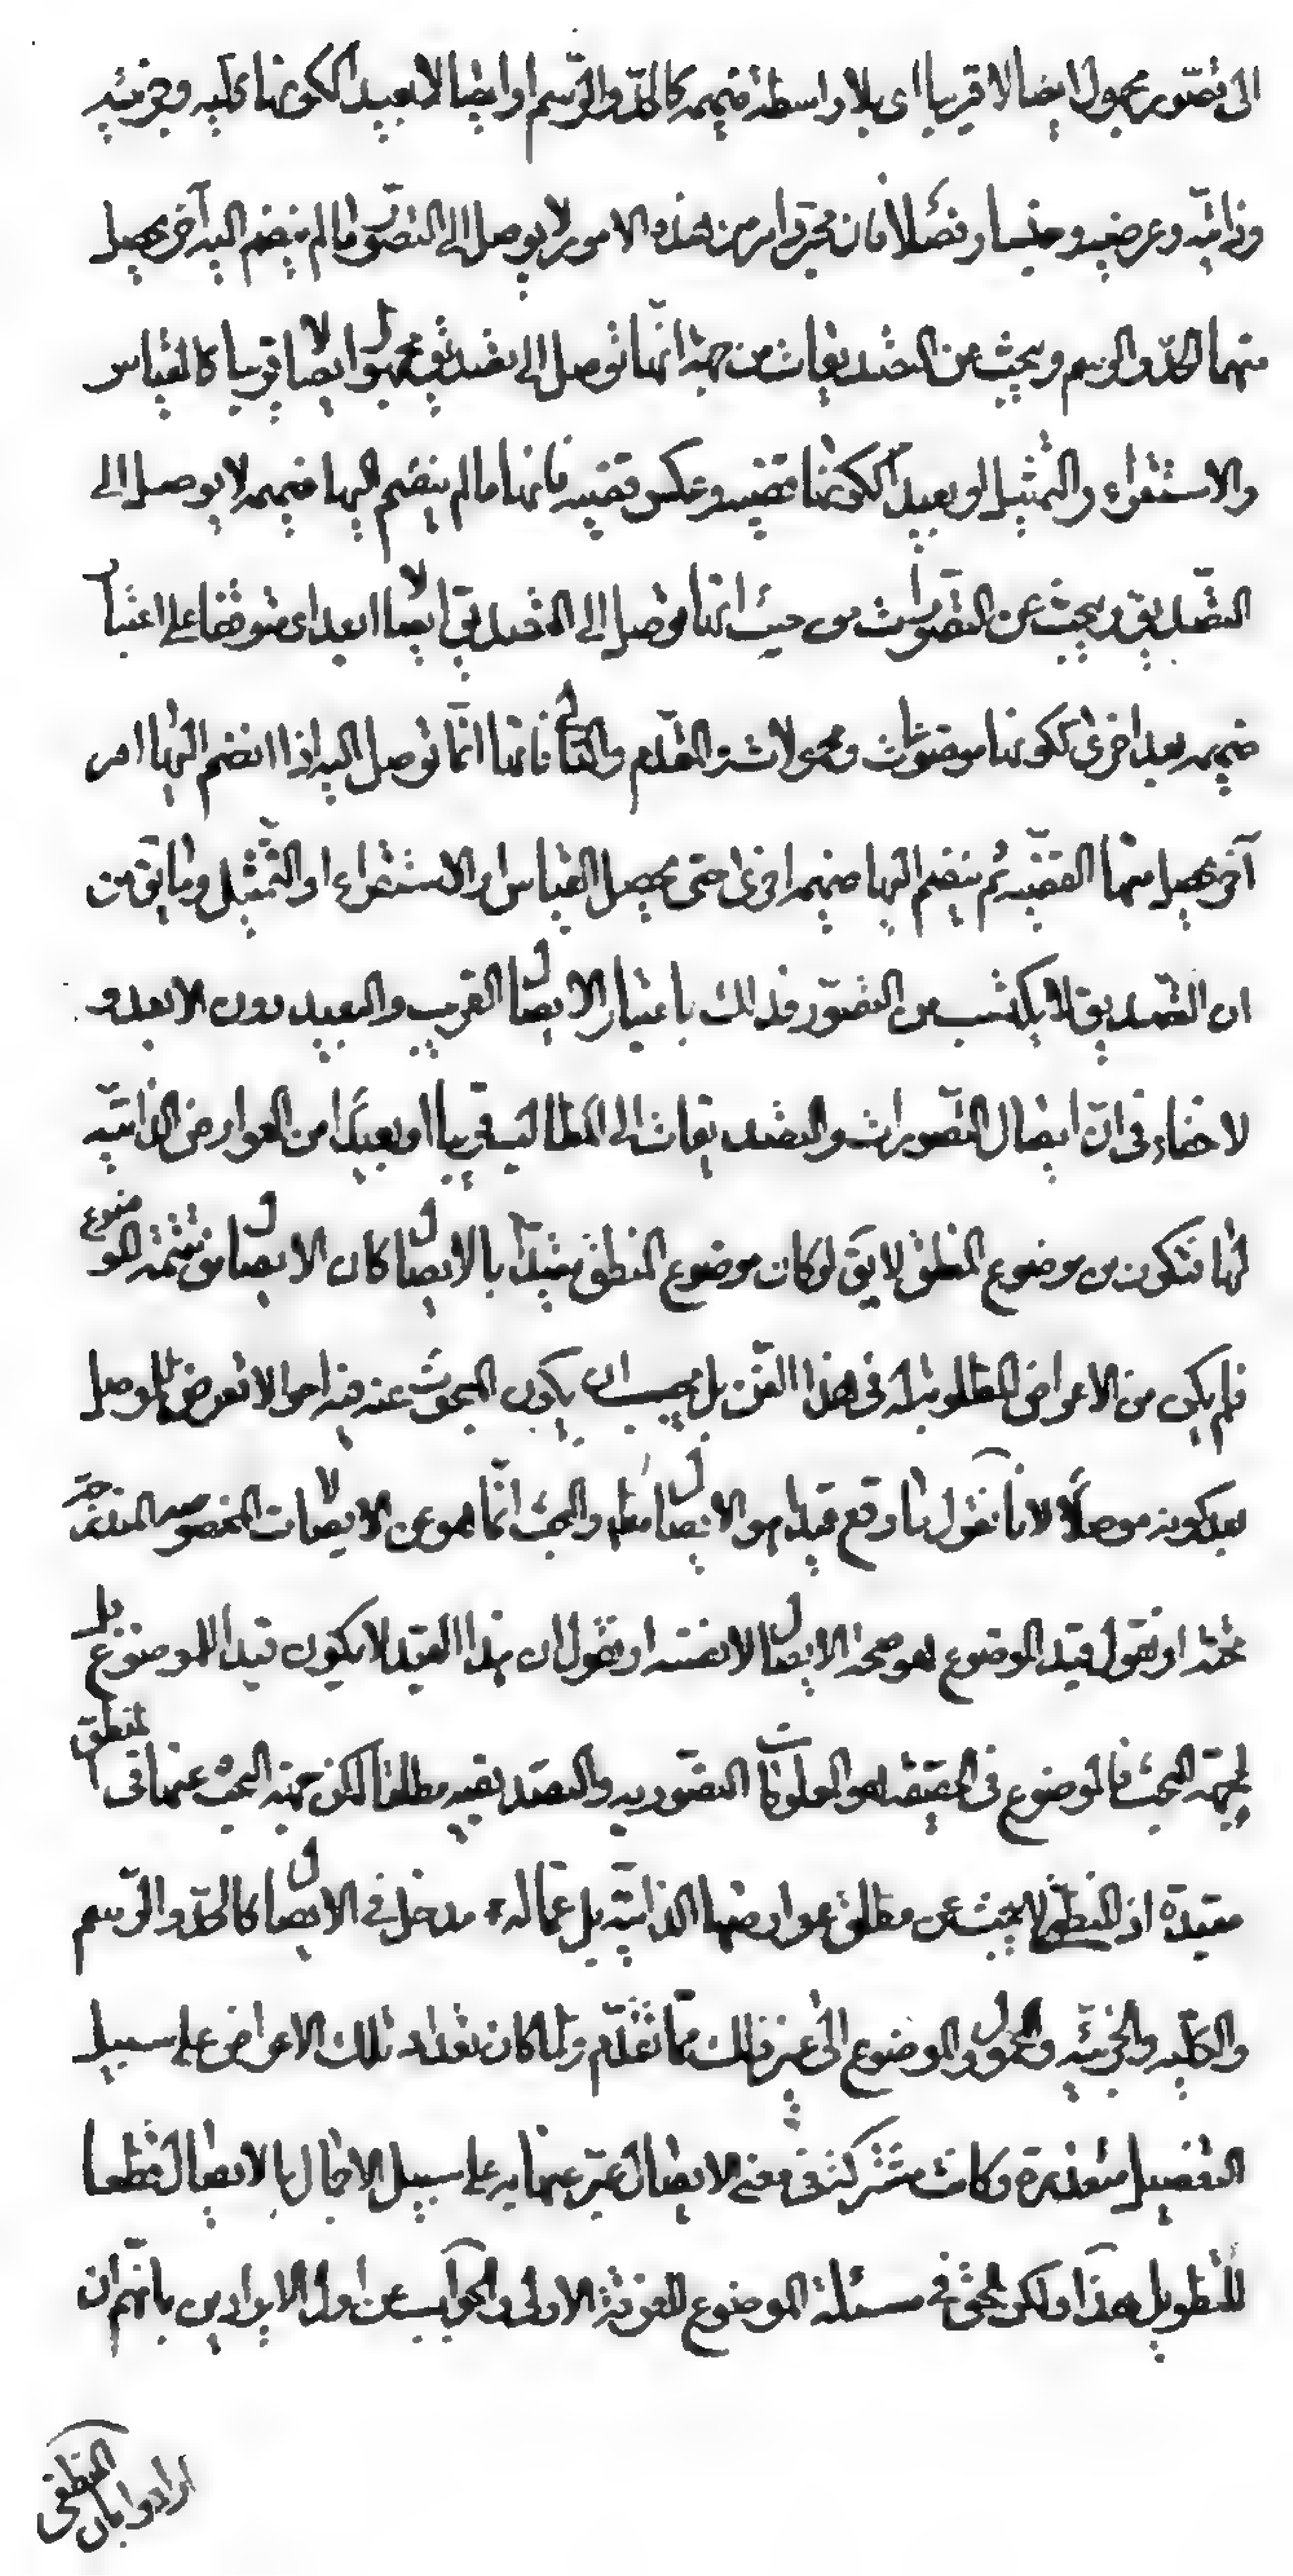 الى تصور مجهول ايصالا قريبا اى بلا واسطة ضميمه كالحدّ والرّسم او ايصالا بعيدا ككونها كليه وجزئيه
وذاتيّه وعرضيه وجنسا وفصلا فان مجرّد امر من هذه الامور لا يوصل الى التصوّر ما لم ينضم اليه آخر يحصل
منهما الحدّ والرسم ويبحث عن التصديقات من جهة انّها توصل الى تصديق مجهول ايصالا قريبا كالقياس
والاستقراء والتمثيل او بعيدا ككونها قضيه وعكس قضيه فانها ما لم ينضم اليها ضميمه لا يوصل الى
التصّديق ويبحث عن التصّورات من حيث انّها توصل الى التصديق ايصالا ابعد اى متوقفا على اعتبار
ضميمه بعد اخرى ككونها موضوعات ومحمولات والمقدّم والتالى فانها انّما توصل اليه اذا انضم اليها امر
آخر يحصل منهما القضيّه ثم ينضم اليها ضميمه اخرى حتى يحصل القياس او الاستقراء او التّمثيل وما يق من
ان التصّديق لا يكتسب من التصوّر فذلك باعتبار الايصال القريب والبعيد دون الابعد و
لا خفاء فى انّ ايصال التصّورات والتصديقات الى المطالب قريبا او بعيدا من العوارض الذاتيّه
لها فتكون من موضوع المنطق لا يق لو كان موضوع المنطق مقيّدا بالايصال كان الايصال من تتمّة الموضوع
فلم يكن من الاعراض المطلوبة له فى هذا الفّن بل يجب ان يكون المبحوث عنه فيه احوالا تعرض للموصل
بعد كونه موصلًا لانا نقول ما وقع قيدا هو الايصال مطلقا والبحث انّما هو عن الايصالات المخصوصه المندرجة
تحته او نقول قيد الموضوع هو صحة الايصال لا نفسه او نقول ان هذا القيد لا يكون قيدا للموضوع بل
لجهة البحث فالموضوع فى الحقيقه هو المعلومات التصّوريه والتصديقيه مطلقا لكن جهة البحث عنها فى المنطق
مقيّدة اذ المنطقى لا يبحث عن مطلق عوارضها الذاتيّه بل عمّا له مدخل فى الايصال كالحدّ والرّسم
والكليّه والجزئيّه والمحمول والموضوع الى غير ذلك ممّا تقدّم ولما كان تعداد تلك الاعراض على سبيل
التفصيل متعذرة وكانت مشتركة فى معنى الايصال عبّر عنها به على سبيل الاجمال بالايصال قطعا
للتطويل هذا ولكن الحق فى مسئلة الموضوع للفرقة الاولى والجواب عن اول الايرادين بانّهم ان
ارادوا بان المنطقى